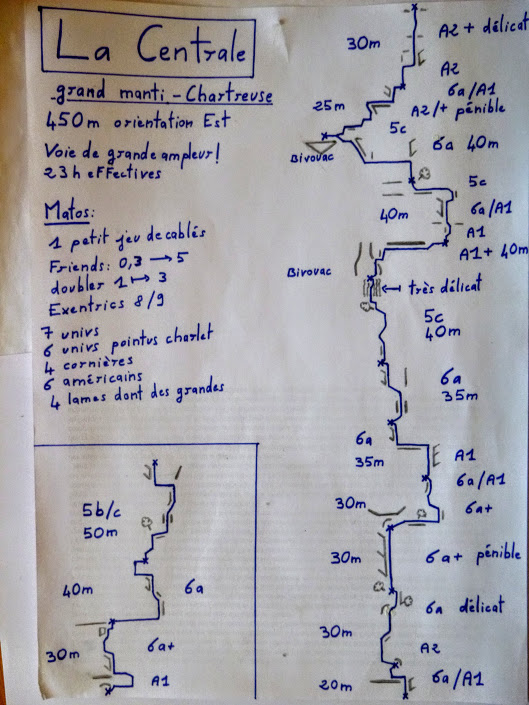 La Centrale
grand manti - Chartreuse
450m orientation Est
Voie de grande ampleur!
23h effectives
Matos:
1 petit jeu de cablés
Friends: 0,3 → 5
doubler 1 ↦ 3
Exentrics 8/9
7 univs
6 univs pointus charlet
4 cornières
6 américains
4 lames dont des grandes
5b/c
50m
40m
6a
30m
6a+
A1
A2 + délicat
30m
A2
6a/A1
25m
A2/+ pénible
5c
6a 40m
Bivouac
5c
6a/A1
40m
A1
A1+ 40m
Bivouac
très délicat
5c
40m
6a
35m
6a
35m
A1
6a/A1
30m
6a+
30m
6a+ pénible
6a délicat
30m
A2
20m
6a/A1